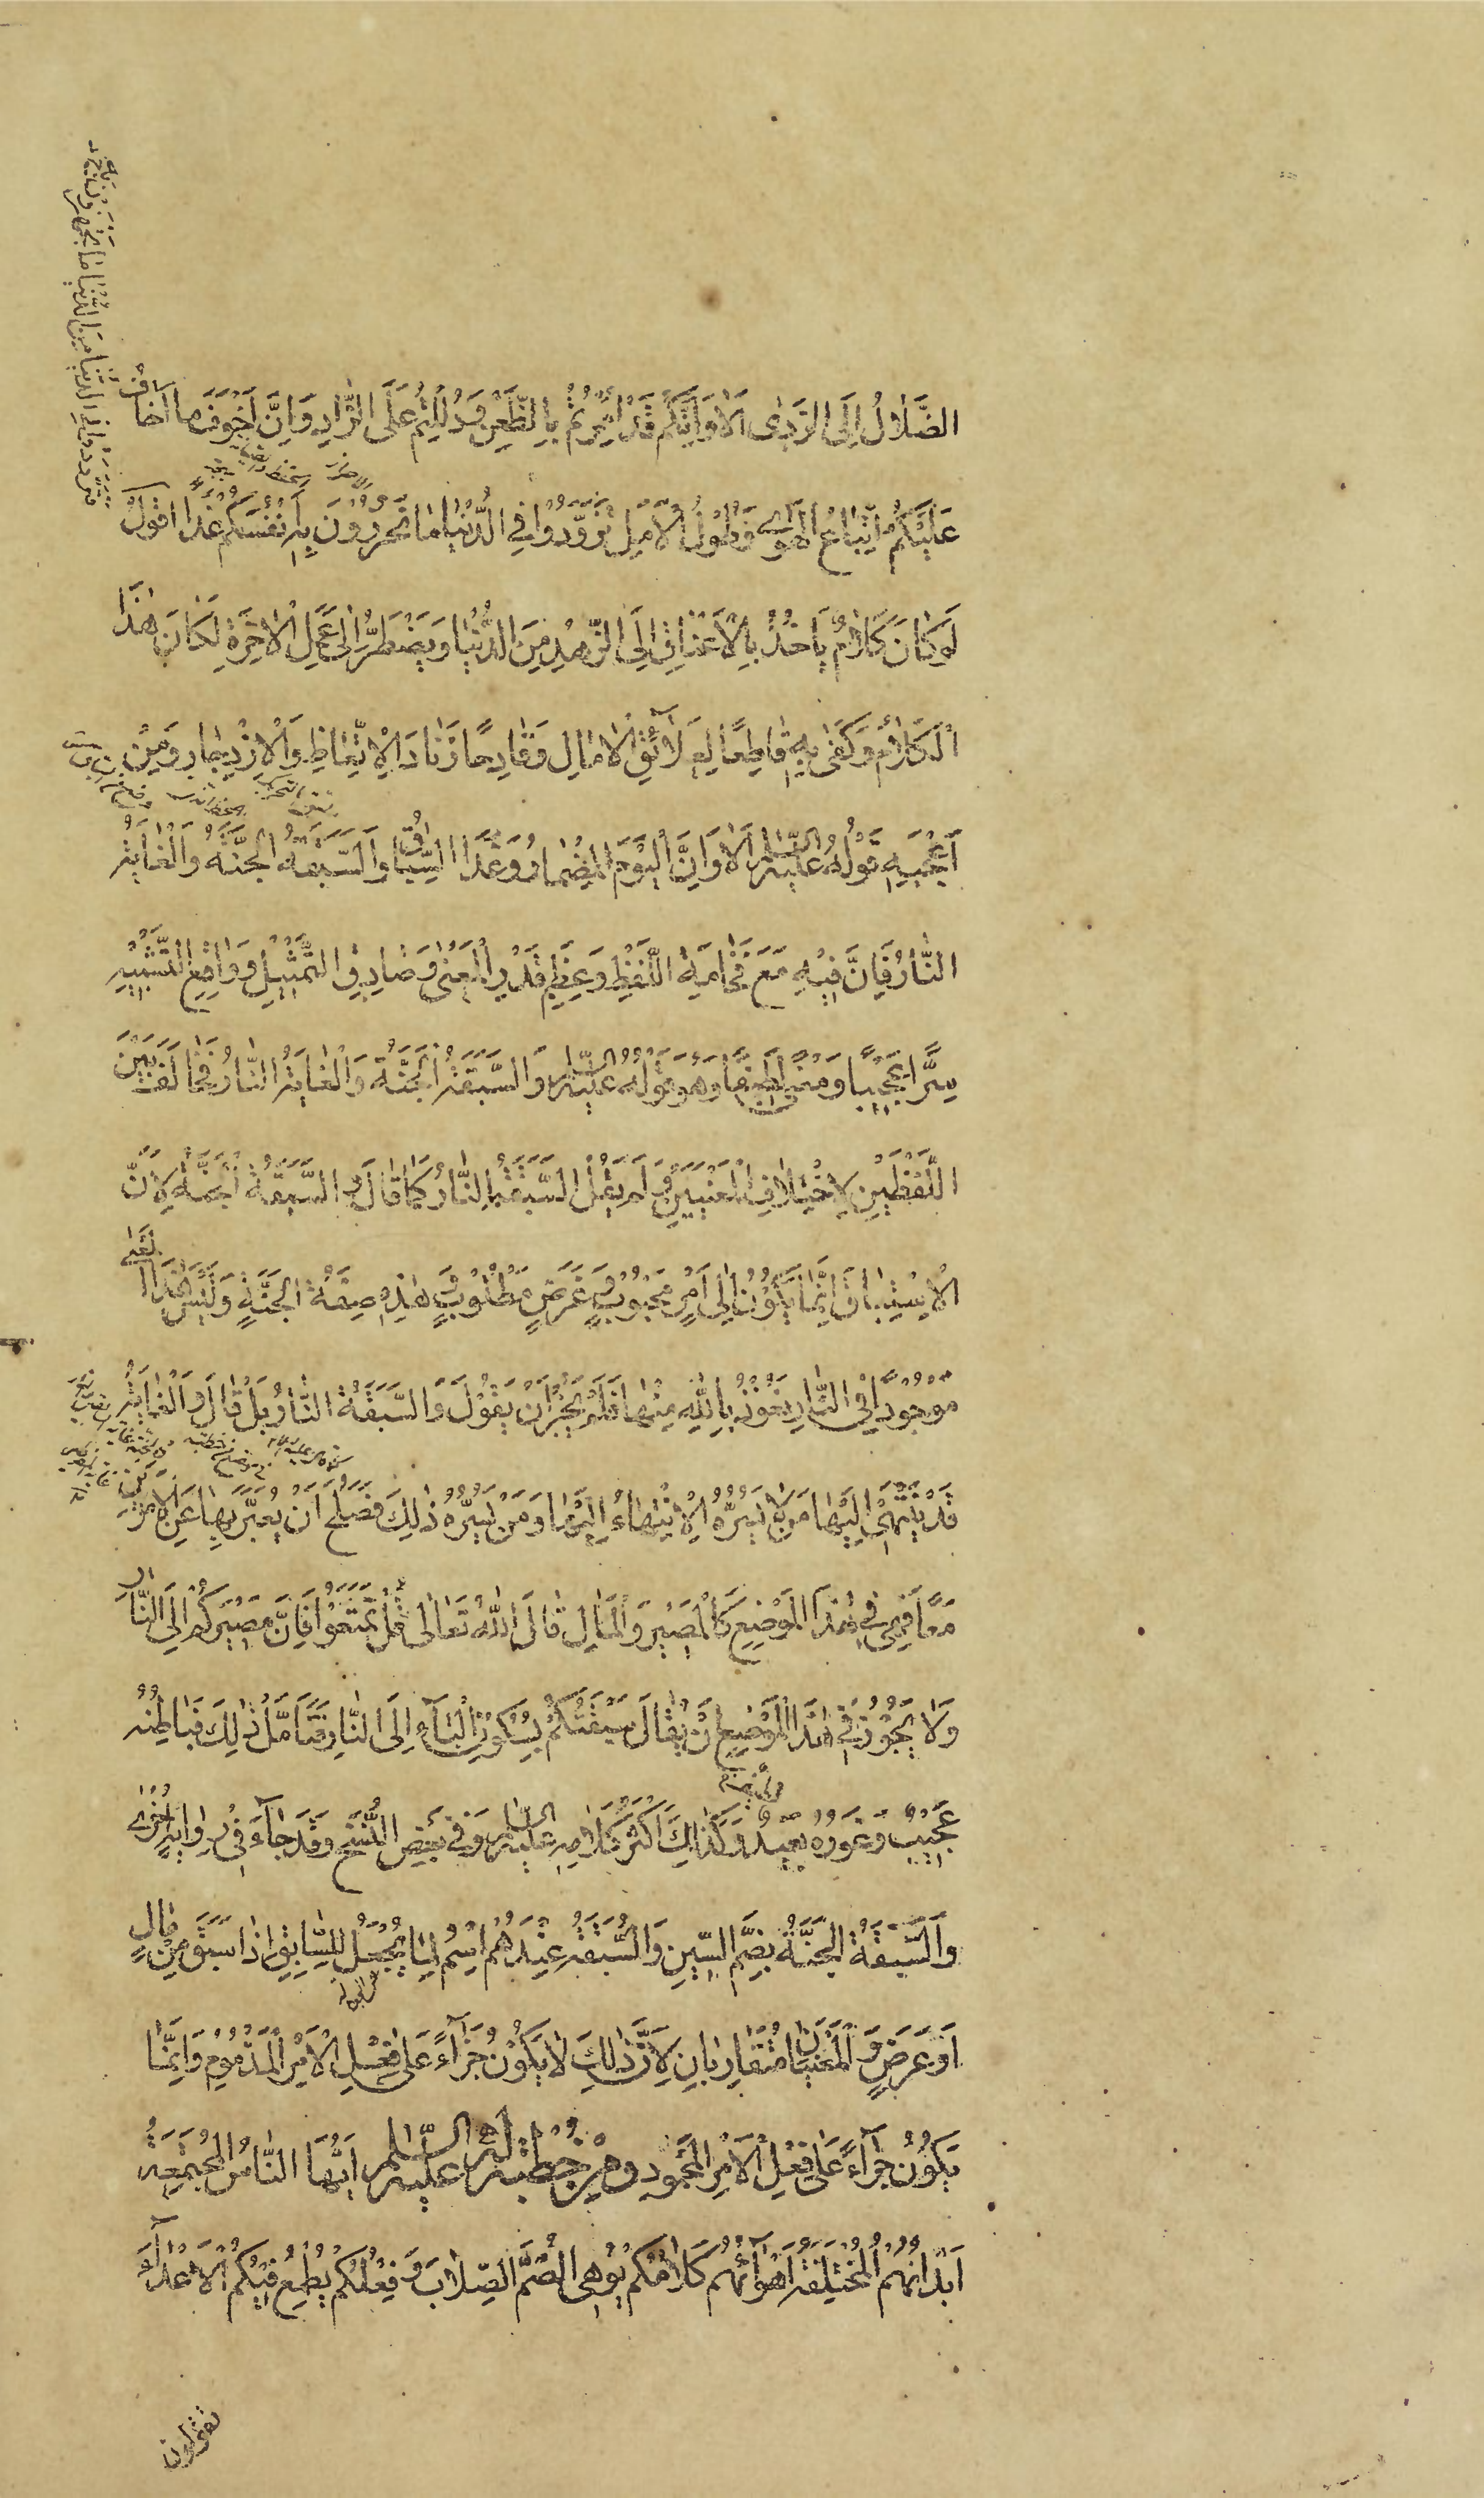 الضَّلَالُ إِلَى الرَّدَى أَلَا وَإِنَّكُمْ قَدْ أُمِرْتُمْ بِالظَّعْنِ وَدُلِلْتُمْ عَلَى الزَّادِ وَإِنَّ أَخْوَفَ مَا أَخَافُ
عَلَيْكُمْ اتِّبَاعُ الْهَوَى وَطُولُ الْأَمَلِ تَزَوَّدُوا فِي الدُّنْيَا مَا تَحْرُزُونَ بِهِ أَنْفُسَكُمْ غَدًا أقول
لَوْ كَانَ كَلَامٌ يَأْخُذُ بِالْأَعْنَاقِ إِلَى الزُّهْدِ مِنَ الدُّنْيَا وَيَضْطَرُّ إِلَى عَمَلِ الْآخِرَةِ لَكَانَ هٰذَا
الْكَلَامُ وَكَفَى بِهِ قَاطِعًا لِعَلَائِقِ الْآمَالِ وَقَادِحًا زِنَادَ الْاِتِّعَاظِ وَالْاِزْدِجَارِ وَمِنْ
أَعْجَبِهِ قَوْلُهُ عَلَيْهِ السَّلَامُ أَلَا وَإِنَّ الْيَوْمَ الْمِضْمَارُ وَغَدًا السِّبَاقُ وَالسَّبَقَةُ الْجَنَّةُ وَالْغَايَةُ
النَّارُ فَإِنَّ فِيهِ مَعَ فَخَامَةِ اللَّفْظِ وَعِظَمِ قَدْرِ الْمَعْنَى وَصَادِقِ التَّمْثِيلِ وَوَاقِعِ التَّشْبِيهِ
سِرًّا عَجِيبًا وَمَعْنًى لَطِيفًا وَهُوَ قَوْلُهُ عَلَيْهِ السَّلَامُ وَالسَّبَقَةُ الْجَنَّةُ وَالْغَايَةُ النَّارُ فَخَالَفَ بَيْنَ
اللَّفْظَيْنِ لِاخْتِلَافِ الْمَعْنَيَيْنِ وَلَمْ يَقُلْ السَّبَقَةُ النَّارُ كَمَا قَالَ وَ السَّبَقَةُ الْجَنَّةُ لِأَنَّ
الْاِسْتِبَاقَ إِنَّمَا يَكُونُ إِلَى أَمْرٍ مَحْبُوبٍ وَغَرَضٍ مَطْلُوبٍ وَهٰذِهِ صِفَةُ الْجَنَّةِ وَلَيْسَ هٰذَا الْمَعْنَى
مَوْجُودًا فِي النَّارِ نَعُوذُ بِاللّٰهِ مِنْهَا فَلَمْ يَجُزْ أَنْ يَقُولَ وَالسَّبَقَةُ النَّارُ بَلْ قَالَ وَالْغَايَةُ
قَدْ يَنْتَهِي إِلَيْهَا مَنْ لَا يَسُرُّهُ الْاِنْتِهَاءُ إِلَيْهَا وَمَنْ يَسُرُّهُ ذٰلِكَ فَصَلَحَ أَنْ يُعَبَّرَ بِهَا عَنِ الْأَمْرَيْنِ
مَعًا فَهِيَ فِي هٰذَا الْمَوْضِعِ كَالْمَصِيرِ وَالْمَآلِ قَالَ اللّٰهُ تَعَالَى قُلْ تَمَتَّعُوا فَإِنَّ مَصِيرَكُمْ إِلَى النَّارِ
وَلَا يَجُوزُ فِي هٰذَا الْمَوْضِعِ أَنْ يُقَالَ سَبْقَتُكُمْ بِسُكُونِ الْبَاءِ إِلَى النَّارِ فَتَأَمَّلْ ذٰلِكَ فَبَاطِنُهُ
عَجِيبٌ وَغَوْرُهُ بَعِيدٌ وَكَذٰلِكَ أَكْثَرُ كَلَامِهِ عَلَيْهِ السَّلَامُ وَفِي بَعْضِ النُّسَخِ وَقَدْ جَاءَ فِي رِوَايَةٍ أُخْرَى
وَالسُّبْقَةُ الْجَنَّةُ بِضَمِّ السِّينِ وَالسُّبْقَةُ عِنْدَهُمْ اسْمٌ لِمَا يُجْعَلُ لِلسَّابِقِ إِذَا سَبَقَ مِنْ مَالٍ
أَوْ عَرَضٍ وَ الْمَعْنَيَانِ مُتَقَارِبَانِ لِأَنَّ ذٰلِكَ لَا يَكُونُ جَزَاءً عَلَى فِعْلِ الْأَمْرِ الْمَذْمُومِ وَإِنَّمَا
يَكُونُ جَزَاءً عَلَى فِعْلِ الْأَمْرِ الْمَحْمُودِ ومن خطبة له عليه السلام أَيُّهَا النَّاسُ الْمُجْتَمِعَةُ
أَبْدَانُهُمُ الْمُخْتَلِفَةُ أَهْوَاؤُهُمْ كَلَامُكُمْ يُوهِي الصُّمَّ الصِّلَابَ وَفِعْلُكُمْ يُطْمِعُ فِيكُمُ الْأَعْدَاءَ
تقولون